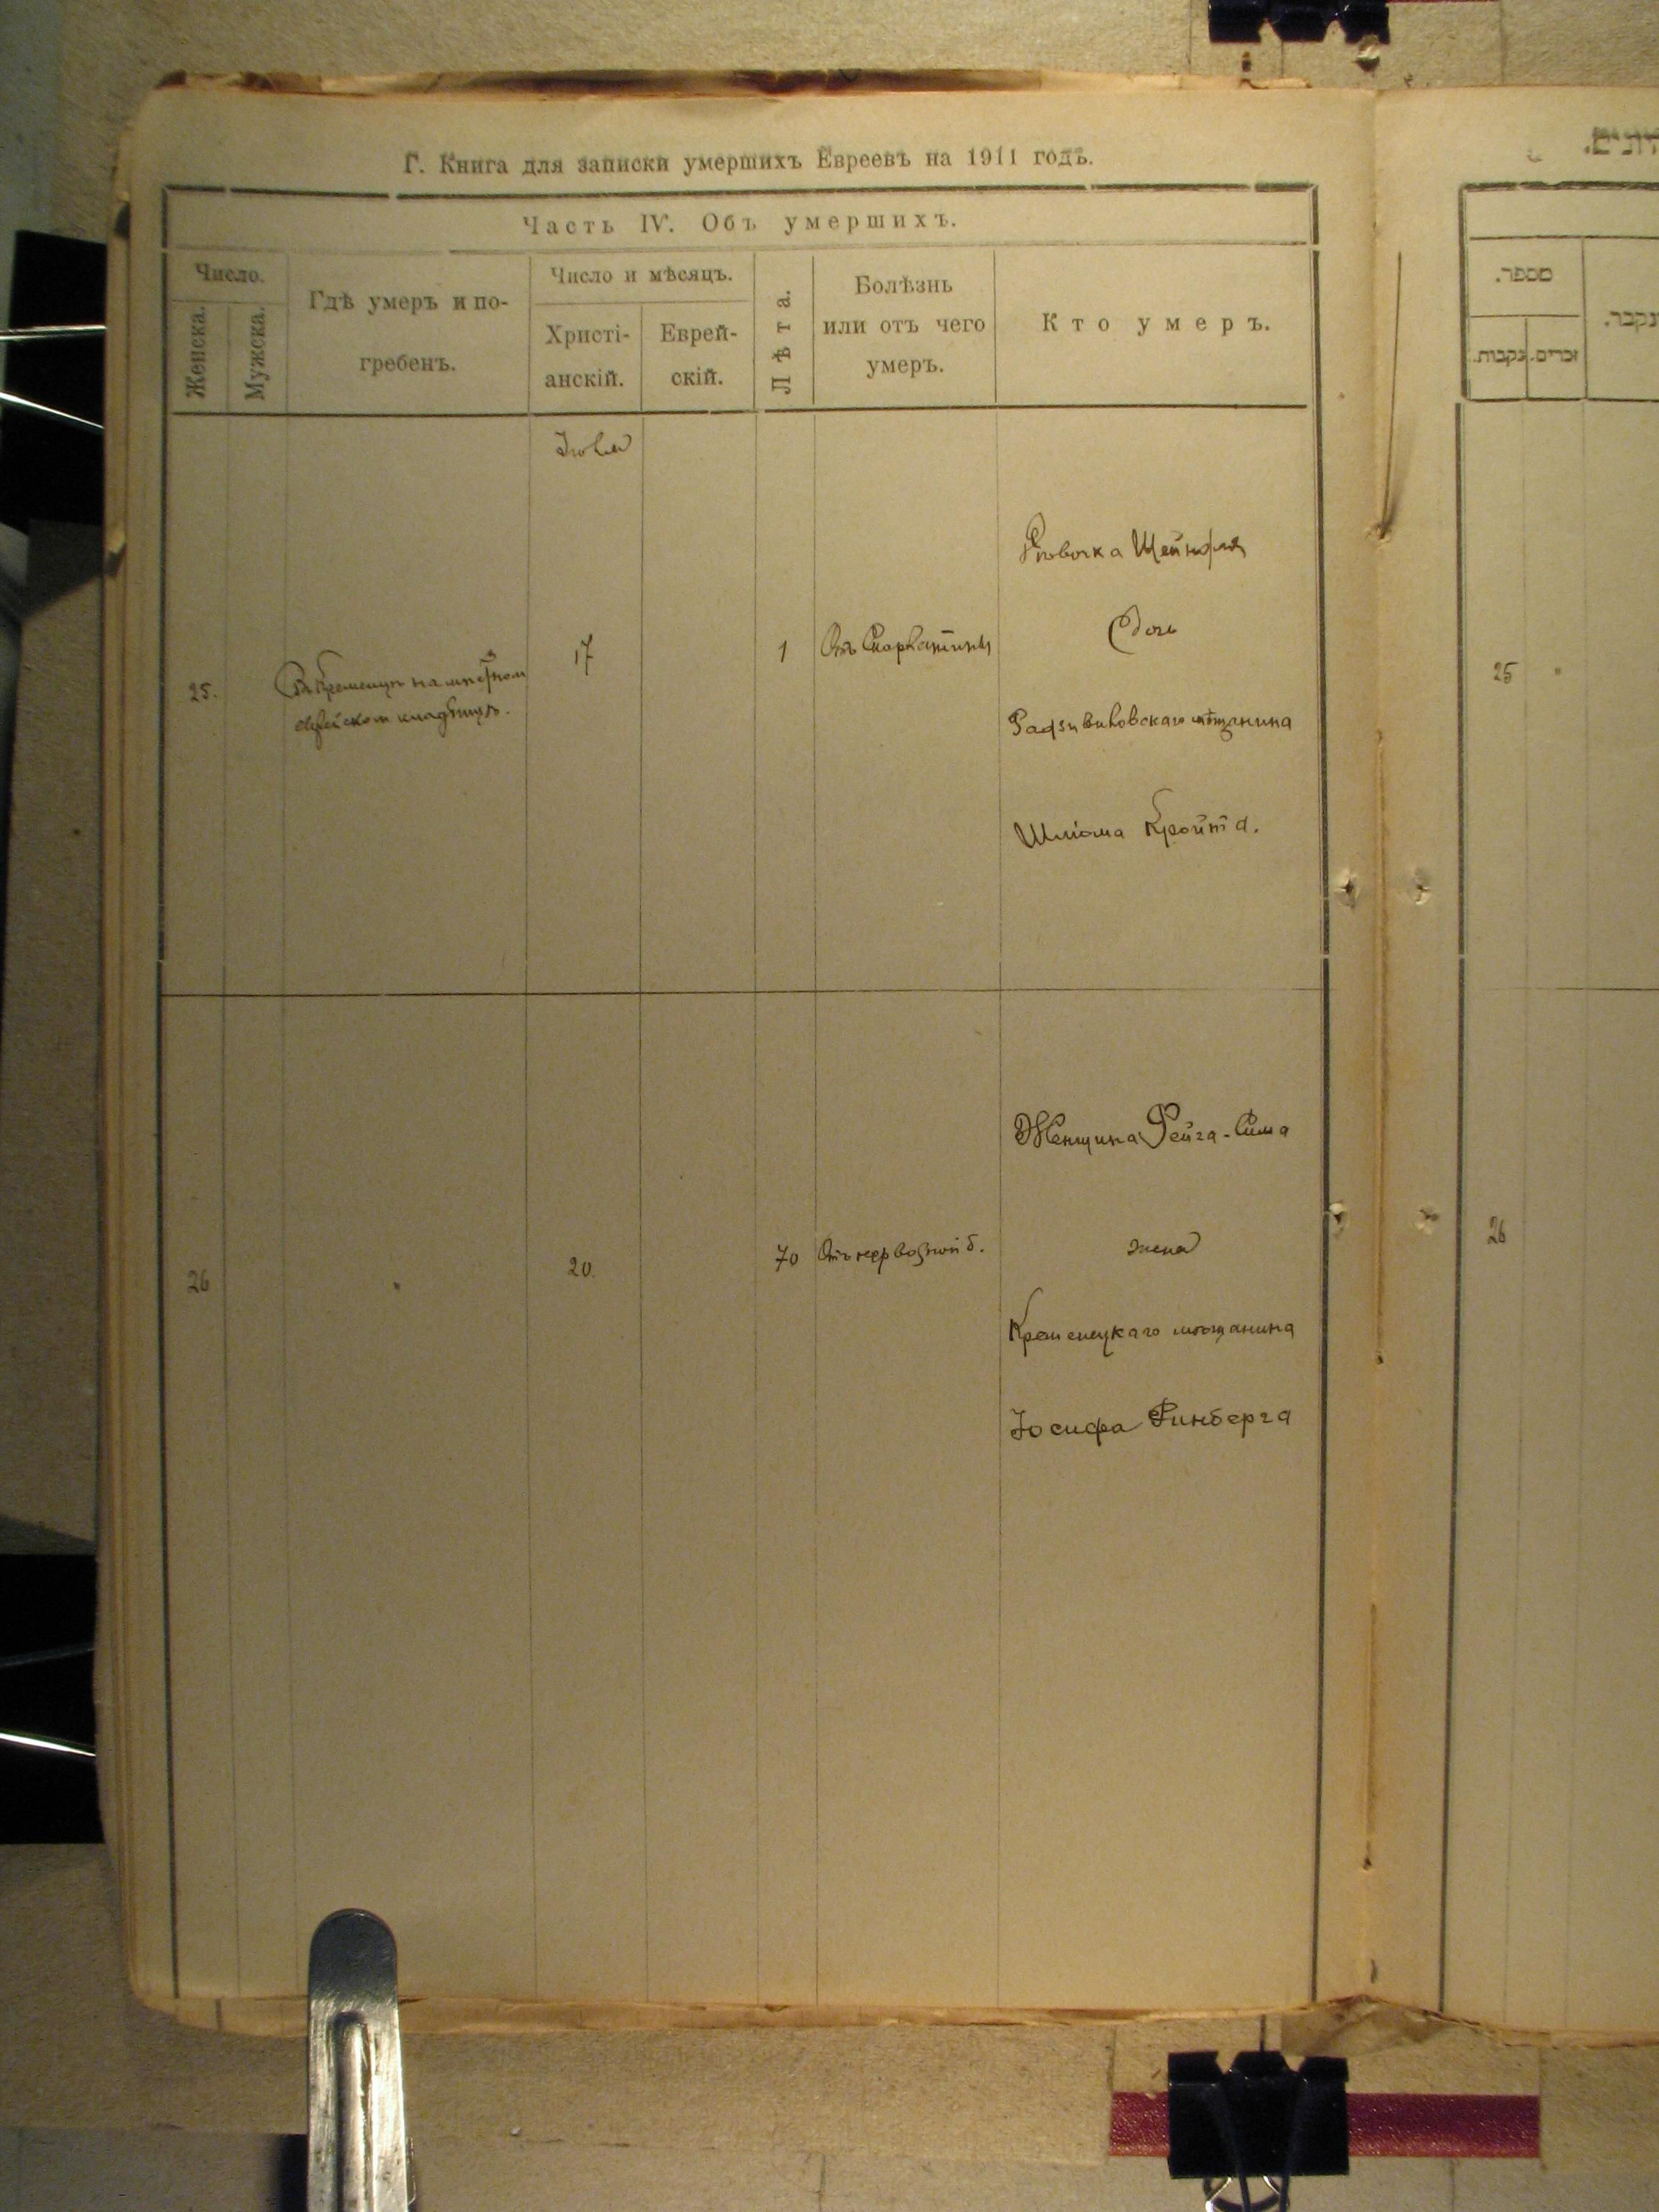 Г. Книга для записки умершихъ Евреевъ на 1911 годъ.
Часть IV. Объ умершихъ.
Число.
Женска.
Мужска.
Гдѣ умеръ и по-
гребенъ.
Число и мѣсяцъ.
Христі-
анскій.
Еврей-
скій.
Лѣта.
Болѣзнь
или отъ чего
умеръ.
Кто умеръ.
Іюля
25.
Въ Кременцѣ на мѣстном
еврейском кладбищѣ.
17
1
Отъ Скарлатины
Дѣвочка
Дочь
Радзивиловскаго мѣщанина
Шліома Кройта.
26
"
20.
70
Отъ нервозной б.
Женщина Фейга-Сима
жена
Кременецкаго мѣщанина
Іосифа Финберга
מספר.
נקבות.
זכרים.
נקבר.
25
"
26